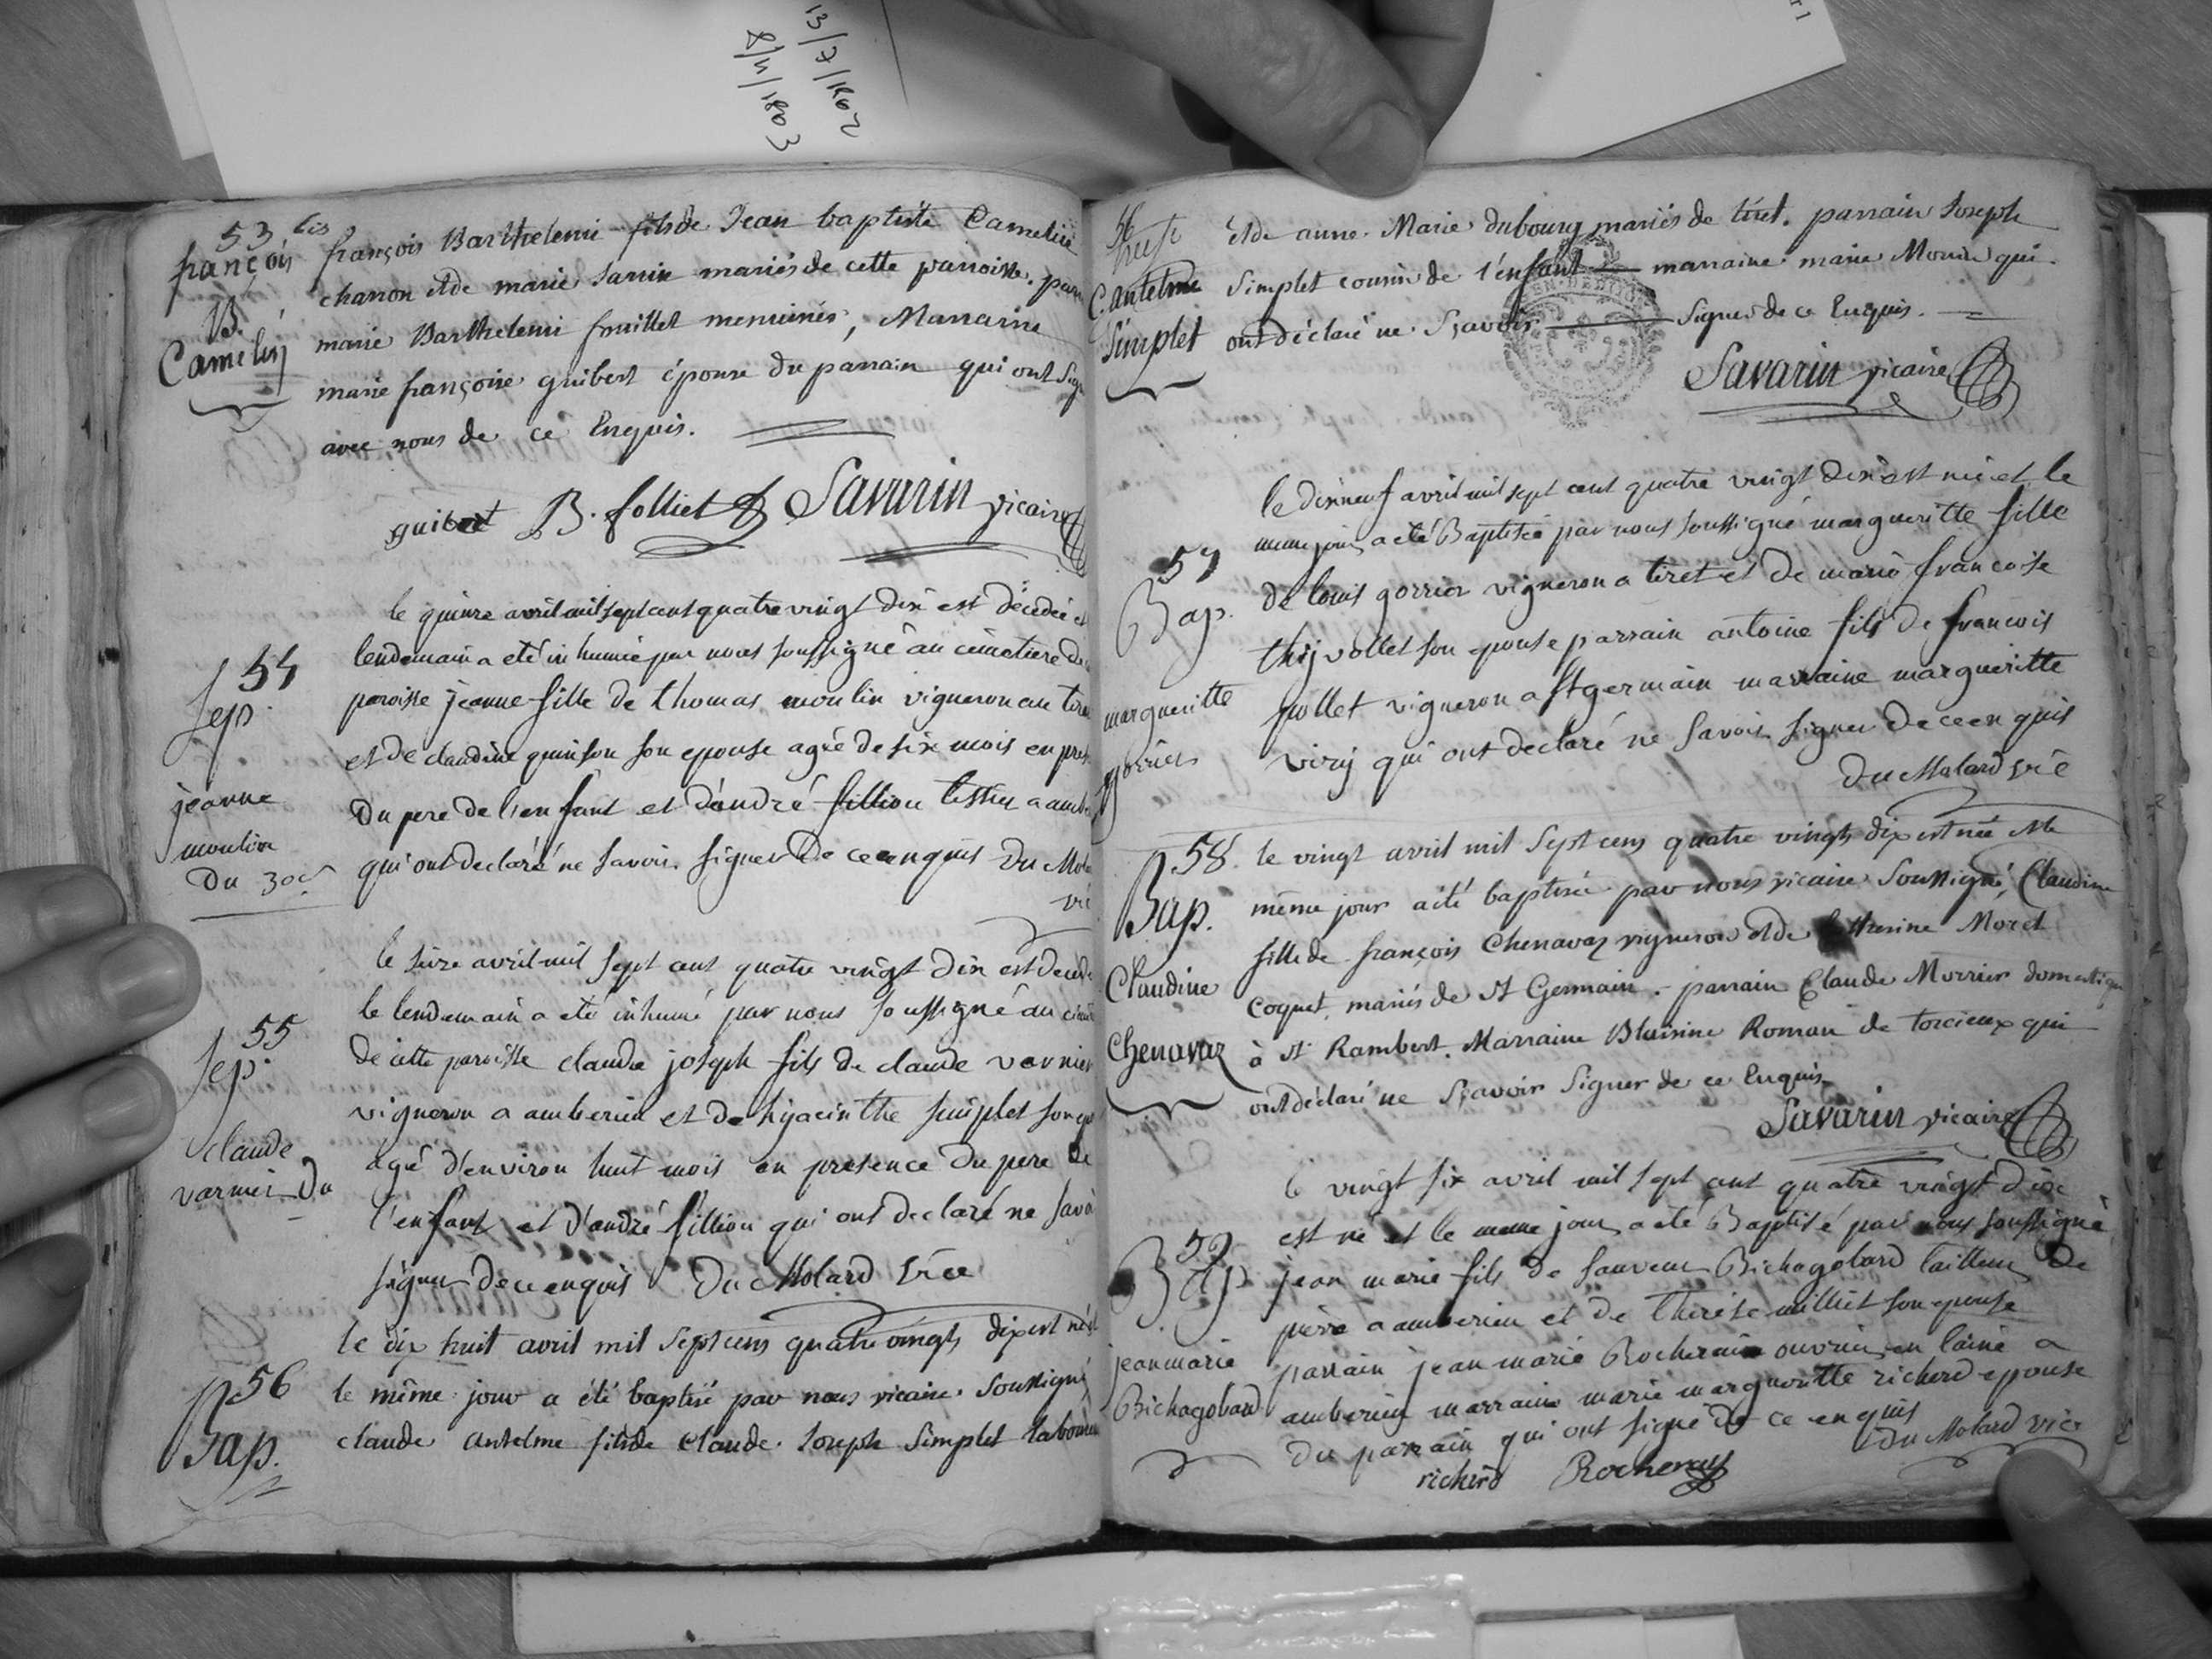 13/7/1802
8/4/1803
53 bis
françois
B.
Camelin
françois Barthelemi fils de Jean baptiste Camelin
charron et de marie Sarrin mariés de cette parroisse. parr
marie Barthelemi menuisier, Marraine
marie françoise guibert épouse du parrain qui ont sig
avec nous de ce Enquis.
guibert B. folliet Savarin vicaire
54
Sep.
jeanne
moulin
du 30s
le quinze avril mil sept cent quatre vingt dix est décédée et
lendemain a eté inhumée par nous soussigné au cimetiere de
paroisse jeanne fille de thomas moulin vigneron au tiret
et de claudine quinson son epouse agée de six mois en pres
du pere de l'enfant et d'andré fillion tissier a ambe
qui ont declaré ne savoir signer de ce enquis Du Mola
vic
55
Sep.
claude
varnier Du
le seize avril mil sept cent quatre vingt dix est decedé
le lendemain a eté inhumé par nous soussigné au cimet
de cette paroisse claude joseph fils de claude varnier
vigneron a amberieu et de hyacinthe simplet son ep
agé d'environ huit mois en presence du pere de
l'enfant et d'andré fillion qui ont declaré ne savoi
signer de ce enquis Du Molard vice
56
Bap.
le dix huit avril mil sept cens quatre vingts dix est né et
le même jour a été baptisé par nous vicaire soussigné,
claude antelme fils de Claude Joseph Simplet laboureur
56
C. antelme
Simplet
et de anne Marie dubourg mariés de tiret. parrain Joseph
Simplet cousin de l'enfant marraine marie Mourin qui
ont déclaré ne Sçavoir Signer de ce Enquis.
Savarin vicaire
57
Bap.
margueritte
gorrier
le dixneuf avril mil sept cent quatre vingt dix est née et le
meme jour a eté Baptisée par nous soussigné margueritte fille
de louis gorrier vigneron a tiret et de marie francoise
thijvollet son epouse parrain antoine fils de francois
jvollet vigneron a St germain marraine margueritte
viry qui ont declaré ne savoir signer de ce en quis
Du Molard vice
58.
Bap.
Claudine
Chenavaz
le vingt avril mil Sept cens quatre vingts dix est née et le
même jour a été baptisée par nous vicaire Soussigné, Claudine
fille de françois Chenavaz vigneron et de Catherine Moret
Coquet, mariés de St Germain. parrain Claude Morrier domestique
à St Rambert. Marraine Blaisine Roman de torcieux qui
ont déclaré ne Sçavoir Signer de ce Enquis.
Savarin vicaire
59
Bap
jean marie
Bichagobard
le vingt six avril mil sept cent quatre vingt dix
est né et le meme jour a eté Baptisé par nous soussigné
jean marie fils de sauveur Bichagobard tailleur de
pierre a amberieu et de therese milliet son epouse
parrain jean marie Rocherain ouvrier en laine a
amberieu marraine marie margueritte richerd epouse
du parrain qui ont signé de ce enquis
Du Molard vice
richerd Rocheray